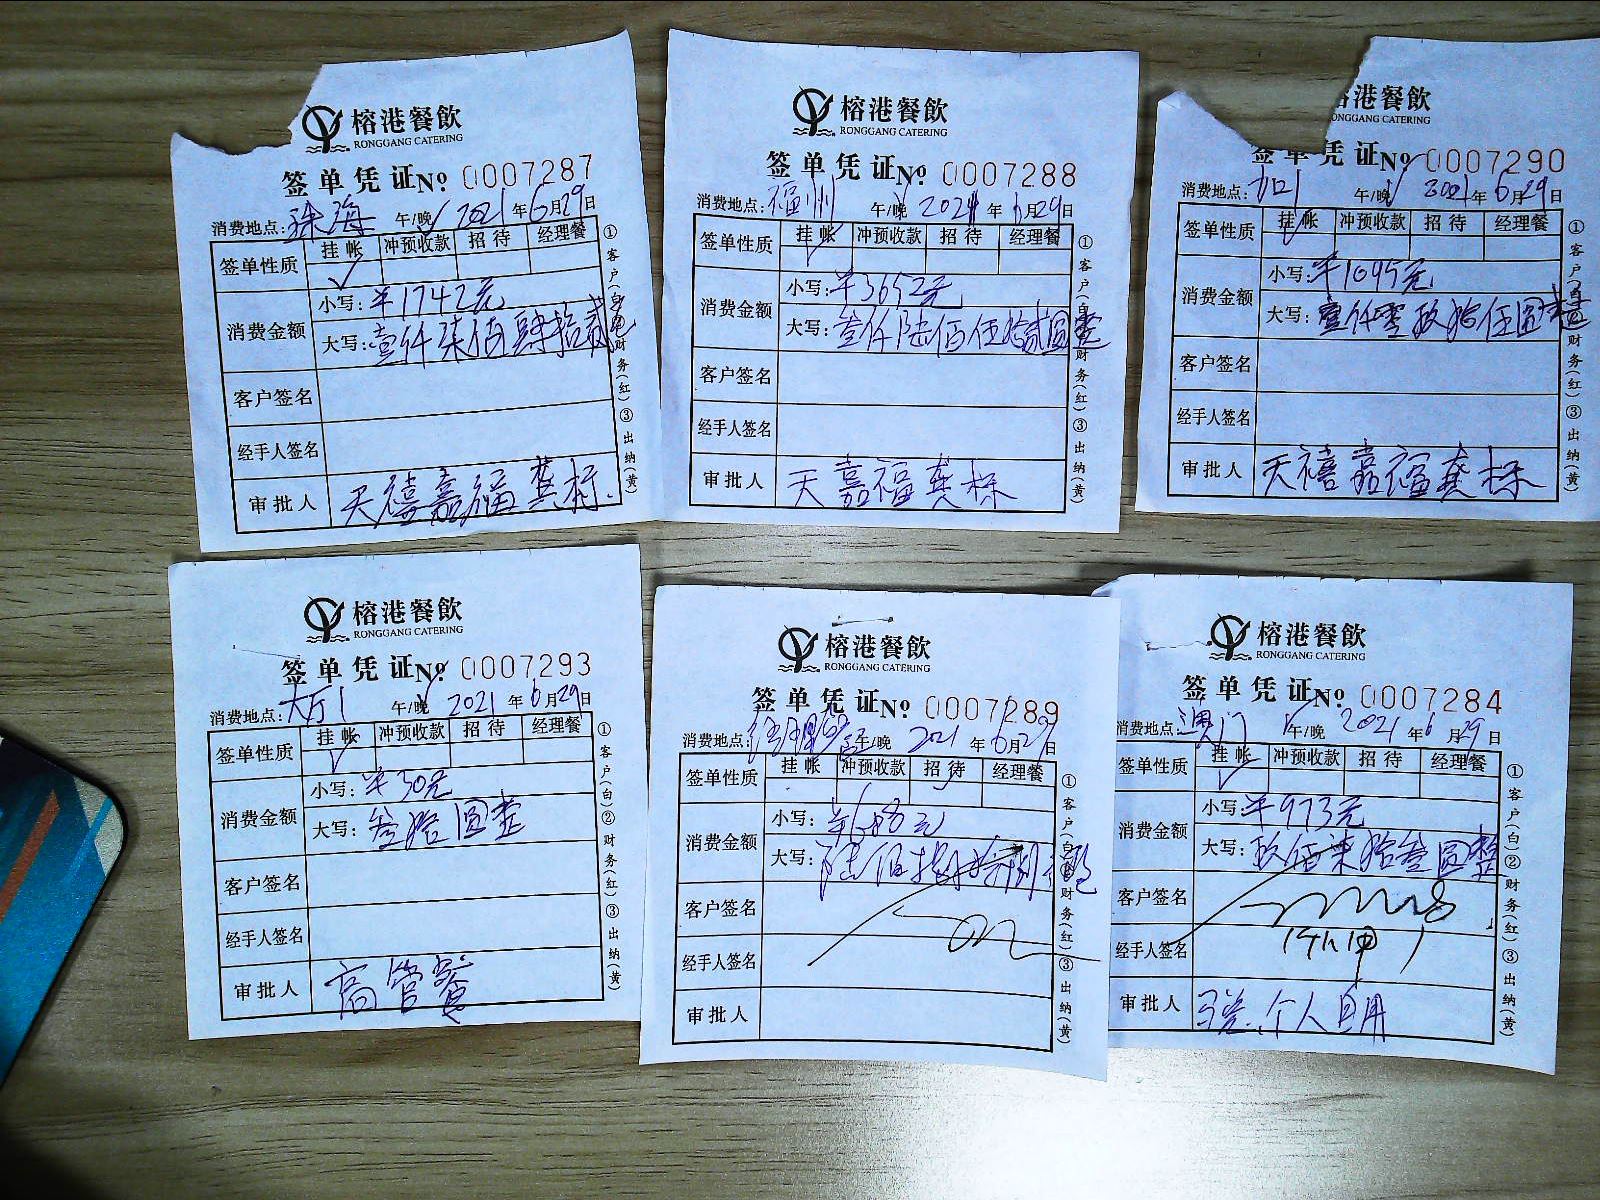 榕港餐飲
RONGGANG CATERING
签单凭证 No. 0007287
消费地点: 珠海 午/晚 √ 2021年6月29日
签单性质 挂帐 冲预收款 招待 经理餐
√
消费金额 小写: ¥1742元
大写: 壹仟柒佰肆拾贰
客户签名
经手人签名
审批人 天禧嘉福 龚标.
①客户(白)②财务(红)③出纳(黄)
榕港餐飲
RONGGANG CATERING
签单凭证 No. 0007288
消费地点: 福州 午/晚 √ 2021年6月29日
签单性质 挂帐 冲预收款 招待 经理餐
√
消费金额 小写: ¥3652元
大写: 叁仟陆佰伍拾贰圆整
客户签名
经手人签名
审批人 天嘉福龚标
①客户(白)②财务(红)③出纳(黄)
港餐飲
ONGGANG CATERING
签单凭证 No. 0007290
消费地点: 午/晚 √ 2021年6月29日
签单性质 挂帐 冲预收款 招待 经理餐
√
消费金额 小写: ¥1095元
大写: 壹仟零玖拾伍圆整
客户签名
经手人签名
审批人 天禧嘉福龚标
①客户(白)②财务(红)③出纳(黄)
榕港餐飲
RONGGANG CATERING
签单凭证 No. 0007293
消费地点: 大厅1 午/晚 √ 2021年6月29日
签单性质 挂帐 冲预收款 招待 经理餐
√
消费金额 小写: ¥30元
大写: 叁拾圆整
客户签名
经手人签名
审批人 高管餐
①客户(白)②财务(红)③出纳(黄)
榕港餐飲
RONGGANG CATERING
签单凭证 No. 0007289
消费地点: 午/晚 2021年6月29日
签单性质 挂帐 冲预收款 招待 经理餐
√
消费金额 小写: ¥688元
大写: 陆佰捌拾捌圆整
客户签名
经手人签名
审批人
①客户(白)②财务(红)③出纳(黄)
榕港餐飲
RONGGANG CATERING
签单凭证 No. 0007284
消费地点: 澳门 √ 午/晚 2021年6月29日
签单性质 挂帐 冲预收款 招待 经理餐
√
消费金额 小写: ¥973元
大写: 玖佰柒拾叁圆整
客户签名
经手人签名
审批人 个人自用
①客户(白)②财务(红)③出纳(黄)